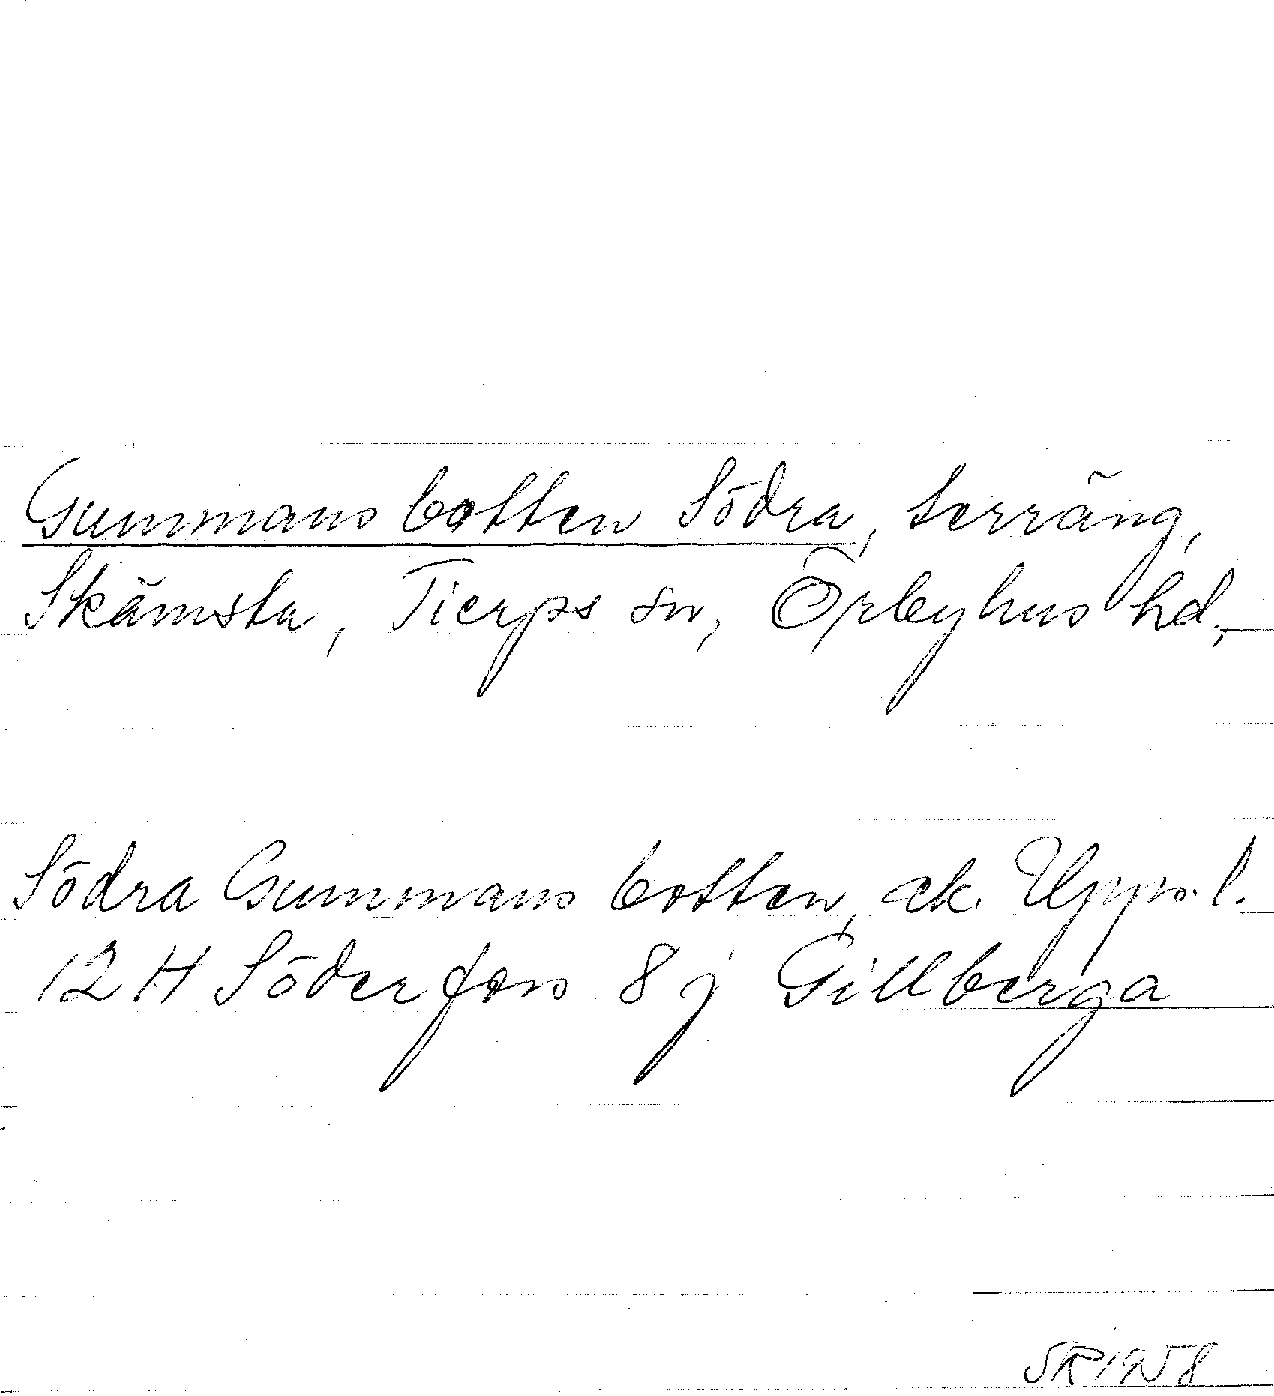 Gummansbotten Södra, terräng,
Skämsta, Tierps sn, Örbyhus hd,
Södra Gummansbotten, ek. Upps. l.
12 H Söderfors 8 j Gillberga